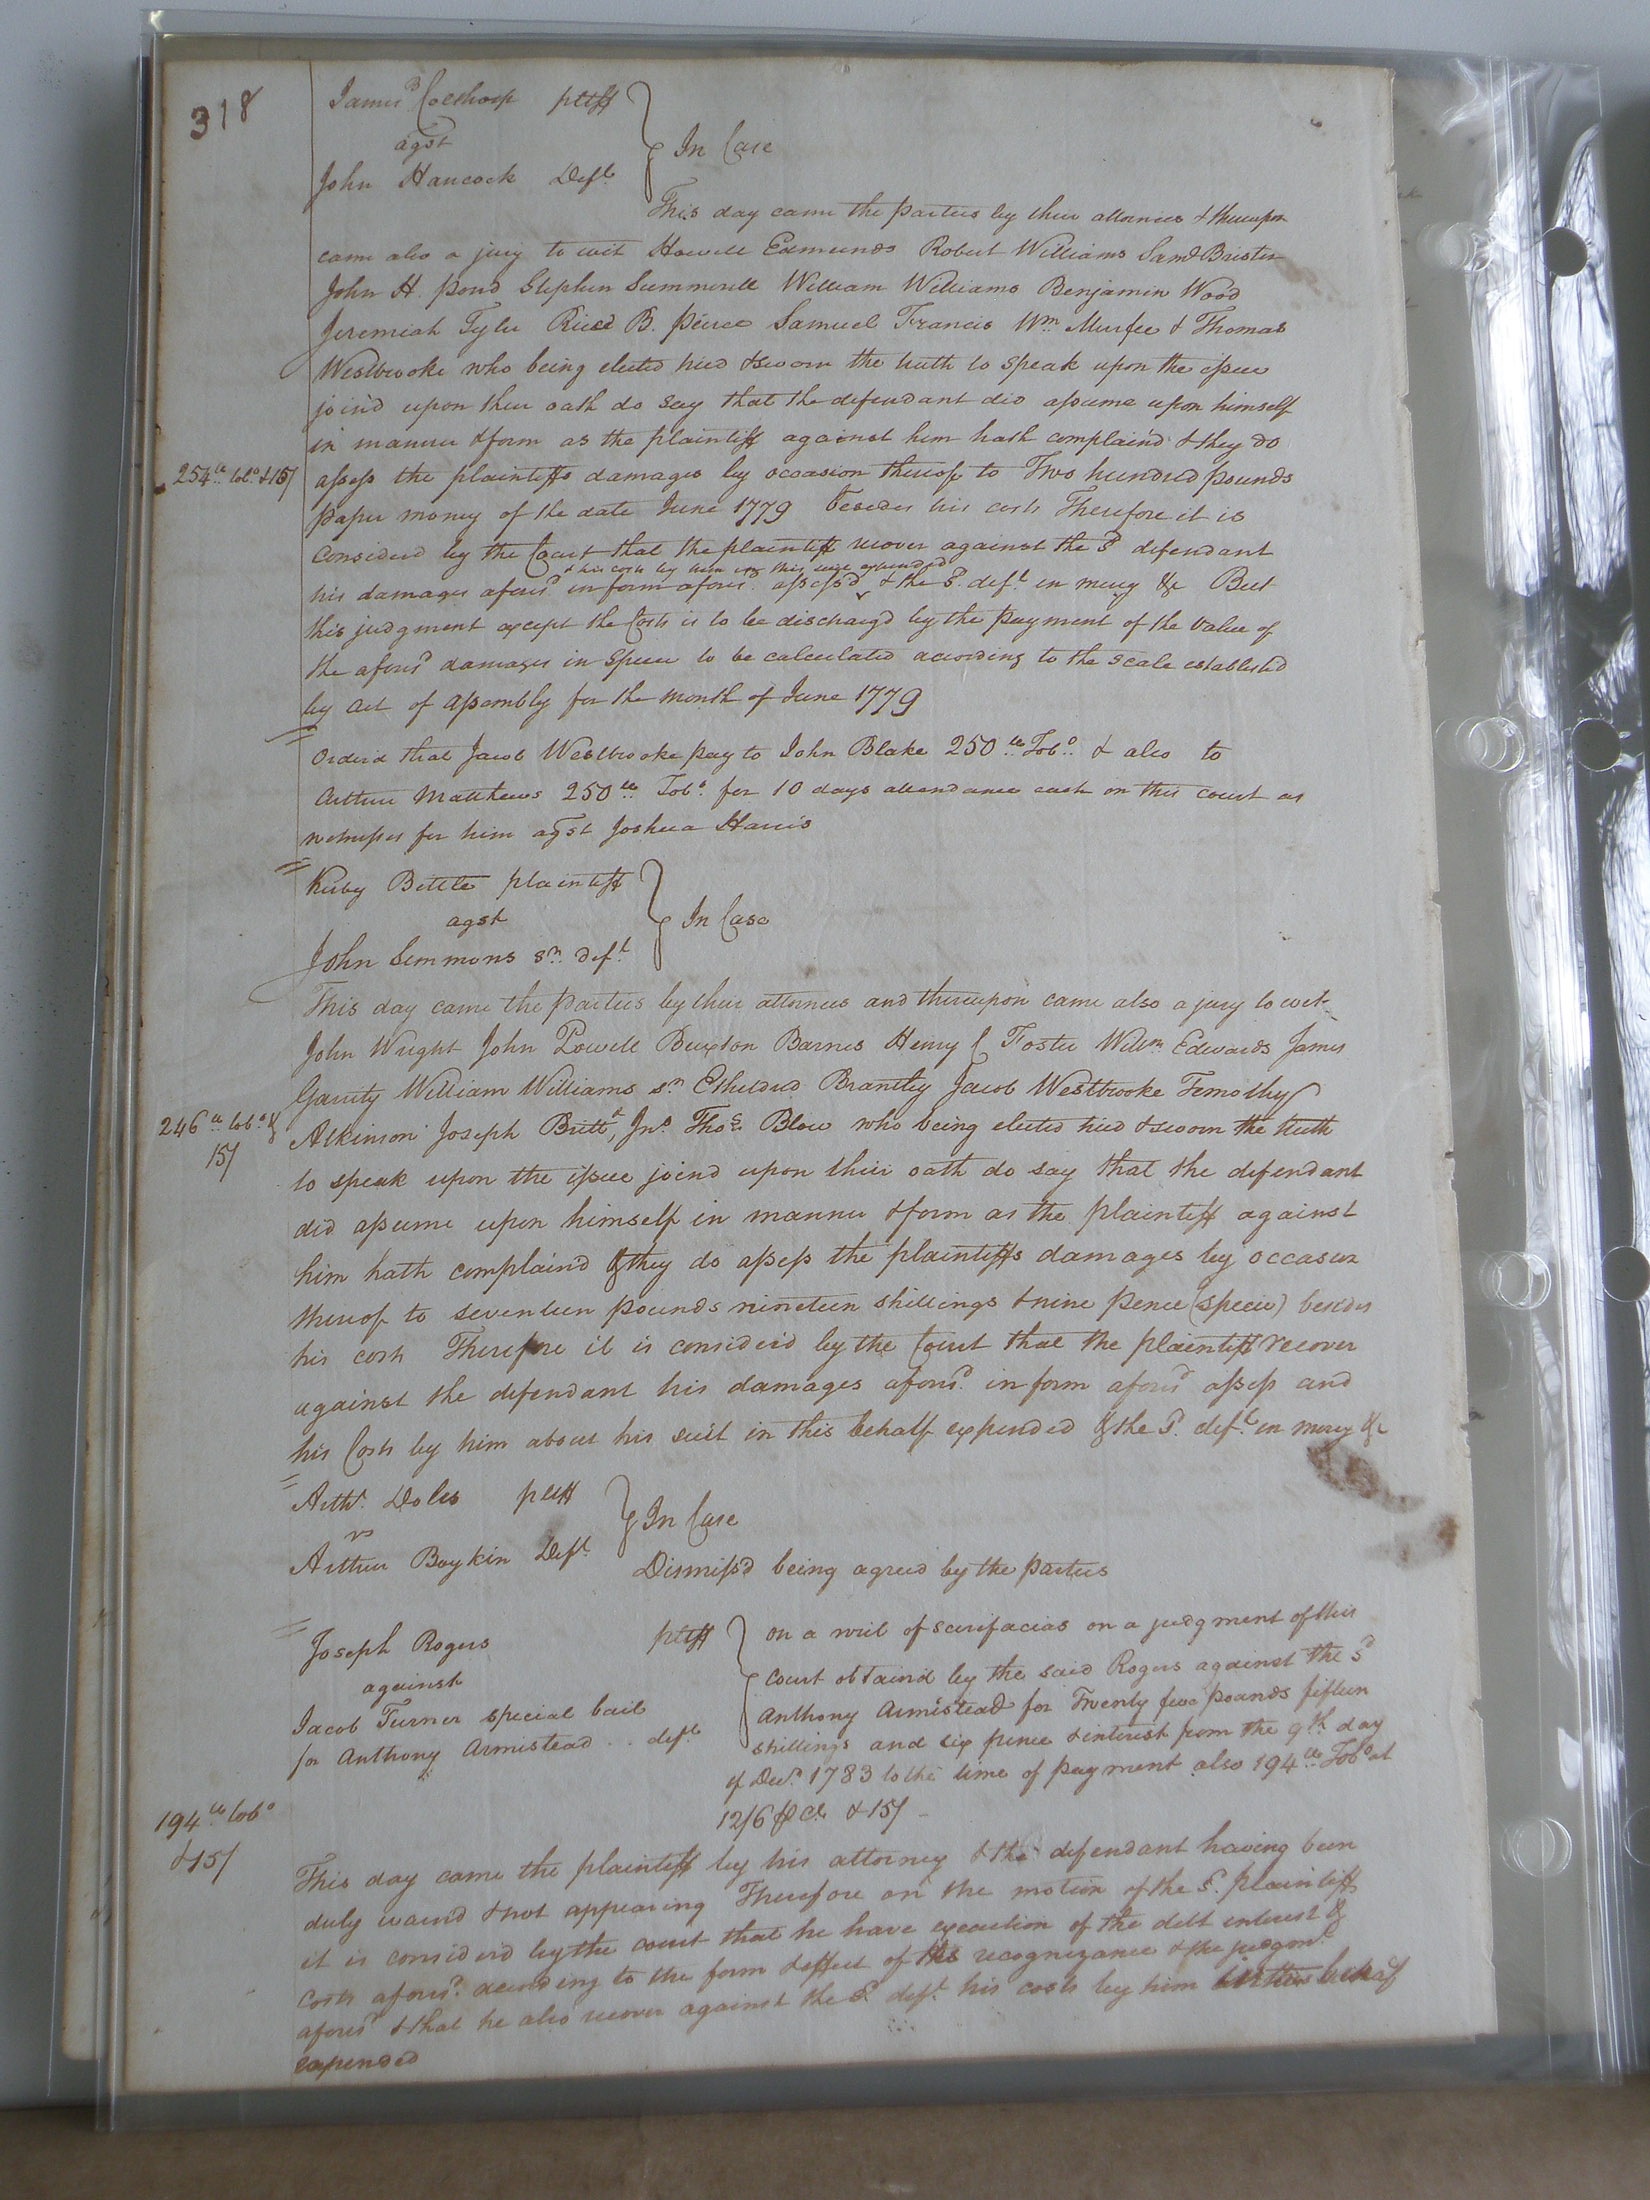 318
James Calthorp pltff
agst
John Hancock Deft
In Case
This day came the parties by their attornies & thereupon
came also a jury to wit Howell Edmunds Robert Williams Saml Brister
John H. Pond Stephen Summerell William Williams Benjamin Wood
Jeremiah Tyler Rice B. Peirce Samuel Francis Wm Murfee & Thomas
Westbrooke who being elected tried & sworn the truth to speak upon the issue
joind upon their oath do say that the defendant did assume upon himself
in manner & form as the plaintiff against him hath complaind & they do
254 lb tobo & 15/
assess the plaintiffs damages by occasion thereof to Two hundred pounds
paper money of the date June 1779 besides his costs Therefore it is
considerd by the Court that the plaintiff recover against the sd defendant
& his costs by him in this suit expended
his damages aforesd in form aforesd assess'd & the sd deft in mercy &c But
this judgment except the Costs is to be discharg'd by the payment of the value of
the aforesd damages in Specie to be calculated according to the scale established
by act of assembly for the month of June 1779
Orderd that Jacob Westbrooke pay to John Blake 250 lb Tobo & also to
Arthur Matthews 250 lb Tobo for 10 days attendance each on this court as
witnesses for him agst Joshua Harris
Kirby Bittle plaintiff
agst
John Simmons Sr Deft
In Case
This day came the parties by their attornies and thereupon came also a jury to wit
John Wright John Powell Buxton Barnes Henry C Foster Willm Edwards James
Garrity William Williams Sr Etheldred Brantley Jacob Westbrooke Timothy
246 lb tobo &
15/
Atkinson Joseph Britt, Jno Thos Blow who being elected tried & sworn the truth
to speak upon the issue joind upon their oath do say that the defendant
did assume upon himself in manner & form as the plaintiff against
him hath complain'd & they do assess the plaintiffs damages by occasion
thereof to seventeen pounds nineteen shillings & nine pence (specie) besides
his costs Therefore it is consider'd by the Court that the plaintiff recover
against the defendant his damages aforesd in form aforesd assess and
his Costs by him about his suit in this behalf expended & the sd deft in mercy &c
Arthr Doles pltff
vs
Arthur Boykin Deft
In Case
Dismiss'd being agreed by the parties
Joseph Rogers pltff
against
Jacob Turner special bail
for Anthony Armistead .. deft
on a writ of scirefacias on a judgment of this
court obtaind by the said Rogers against the sd
Anthony Armistead for Twenty five pounds fifteen
shillings and six pence & interest from the 9th day
of Decr 1783 to the time of payment also 194 lb Tobo at
12/6 pr ct & 15/
194 lb tobo
& 15/
This day came the plaintiff by his attorney & the defendant having been
duly warnd & not appearing Therefore on the motion of the sd plaintiff
it is considerd by the court that he have execution of the debt interest &
costs aforesd according to the form & effect of the recognizance & the judgmt
aforesd & that he also recover against the sd deft his costs by him in this behalf
expended